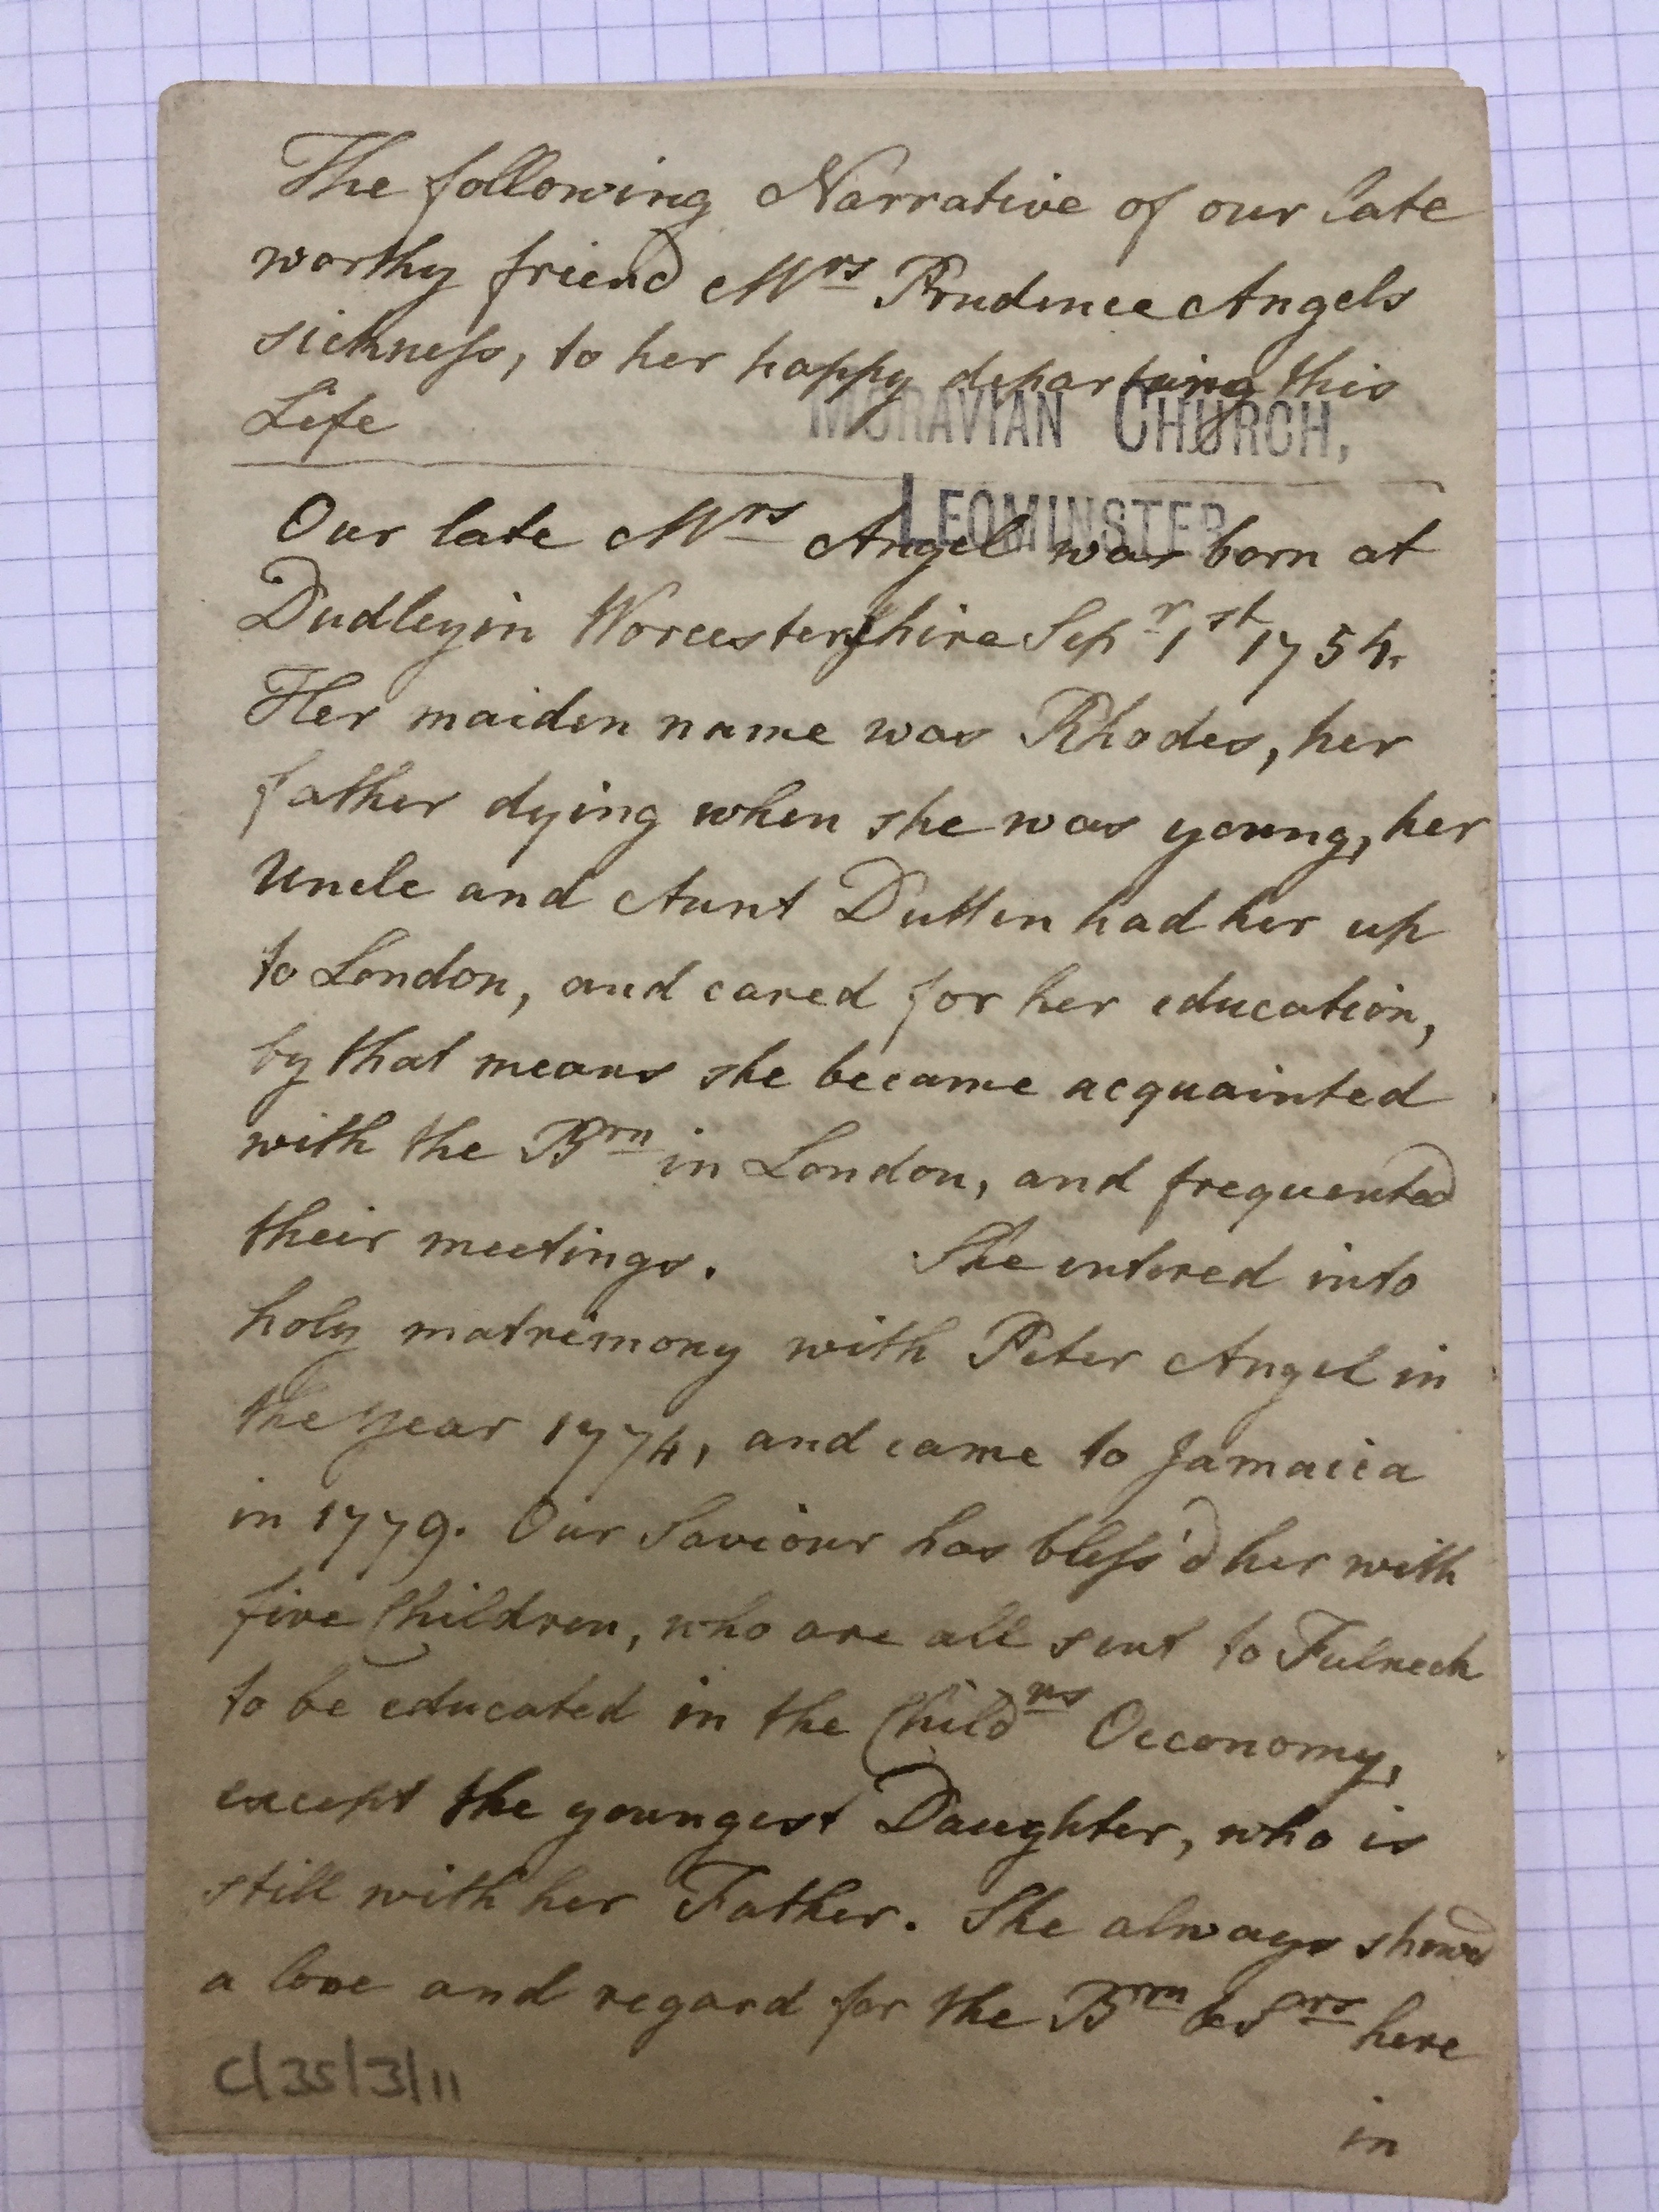 The following Narrative of our late
worthy friend Mrs Prudence Angels
sickness, to her happy departing this
Life
MORAVIAN CHURCH,
LEOMINSTER
Our late Mrs Angel was born at
Dudley in Worcestershire Sepr 1st 1754.
Her maiden name was Rhodes, her
father dying when she was young, her
Uncle and Aunt Dutten had her up
to London, and cared for her education,
by that means she became acquainted
with the Brn in London, and frequented
their meetings. She entered into
holy matrimony with Peter Angel in
the Year 1774, and came to Jamaica
in 1779. Our Saviour has bless'd her with
five Children, who are all sent to Fulneck
to be educated in the Childns Oeconomy,
except the youngest Daughter, who is
still with her Father. She always showd
a love and regard for the Brn & Srs here
in
C/35/3/11